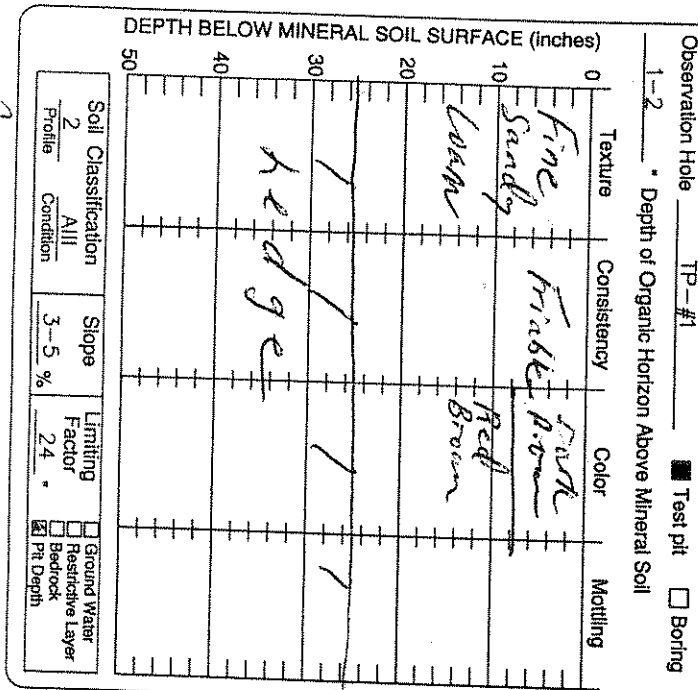 Observation Hole TP-#1 Test pit Boring
1-2 " Depth of Organic Horizon Above Mineral Soil
DEPTH BELOW MINERAL SOIL SURFACE (inches)
Texture Consistency Color Mottling
0
10
20
30
40
50
Fine
Sandy
Loam
Friable
Dark
Brown
Red
Brown
Soil Classification
2 AIII
Profile Condition
Slope
3-5 %
Limiting
Factor
24 "
Ground Water
Restrictive Layer
Bedrock
Pit Depth